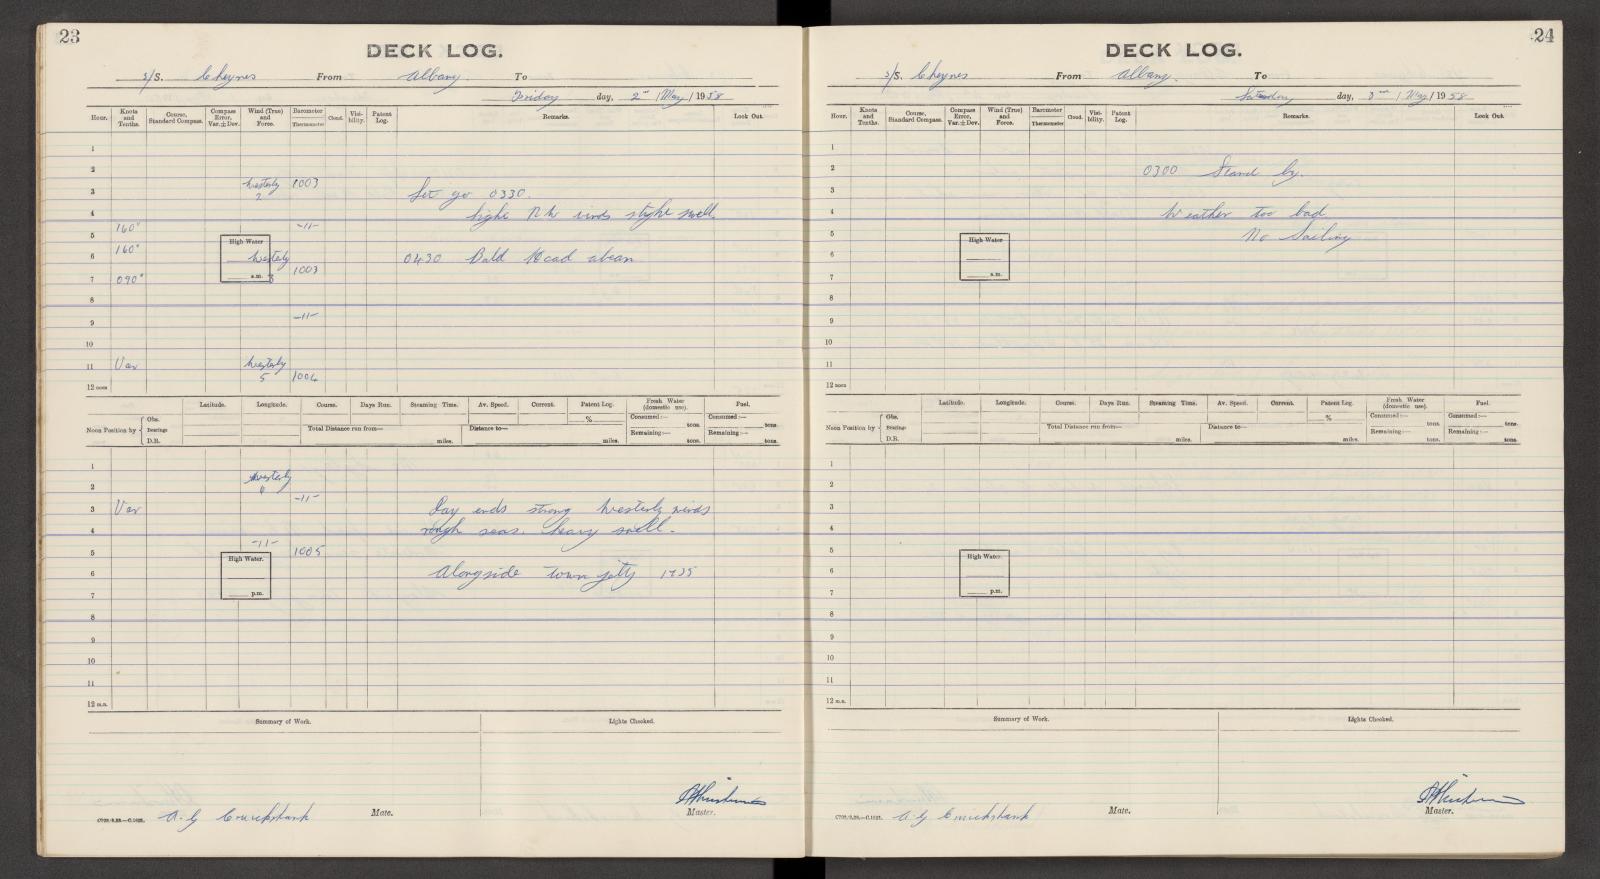 23
DECK LOG.
s/S. Cheynes From Albany. To
Friday day, 2nd / May / 1958
Hour. Knots and Tenths. Course, Standard Compass. Compass Error, Var. ± Dev. Wind (True) and Force. Barometer Thermometer Cloud. Visibility. Patent Log. Remarks. Look Out.
1
2
Westerly 1003
3 2 Set go 0330.
4 light N W winds slight swell.
160° -11-
5 High Water
160° Westerly
6 0430 Bald Head abeam
1003
7 090° a.m. 3
8
9 -11-
10
11 Var Westerly
5 1004
12 noon
Latitude. Longitude. Course. Days Run. Steaming Time. Av. Speed. Current. Patent Log. Fresh Water (domestic use). Fuel.
Noon Position by Obs. % Consumed:— tons. Consumed:— tons.
Bearings Total Distance run from— miles. Distance to— miles. Remaining:— tons. Remaining:— tons.
D.R.
1
Westerly
2
-11-
3 Var Day ends strong Westerly winds
4 rough seas. heavy swell.
-11- 1005
5 High Water.
6 Alongside Town jetty 1735
7 p.m.
8
9
10
11
12 m.n.
Summary of Work. Lights Checked.
A. G Cruickshank Mate. Master.
24
DECK LOG.
s/S. Cheynes From Albany. To
Saturday day, 3rd / May / 1958
Hour. Knots and Tenths. Course, Standard Compass. Compass Error, Var. ± Dev. Wind (True) and Force. Barometer Thermometer Cloud. Visibility. Patent Log. Remarks. Look Out.
1
2 0300 Stand by.
3
4 Weather too bad
5 No Sailing
High Water
6
7 a.m.
8
9
10
11
12 noon
Latitude. Longitude. Course. Days Run. Steaming Time. Av. Speed. Current. Patent Log. Fresh Water (domestic use). Fuel.
Noon Position by Obs. % Consumed:— tons. Consumed:— tons.
Bearings Total Distance run from— miles. Distance to— miles. Remaining:— tons. Remaining:— tons.
D.R.
1
2
3
4
5
High Water.
6
7 p.m.
8
9
10
11
12 m.n.
Summary of Work. Lights Checked.
A. G Cruickshank Mate. Master.